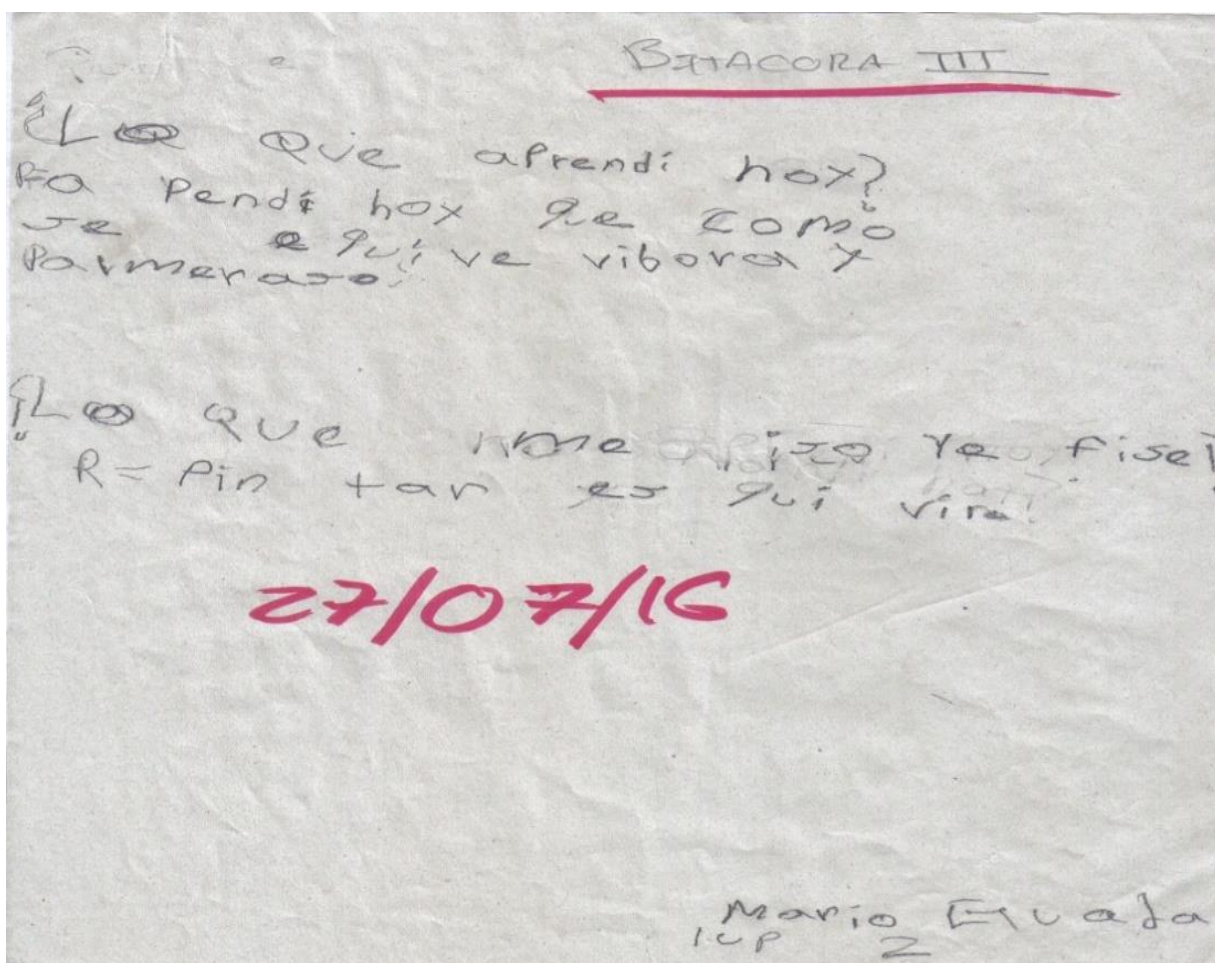 BITACORA III
¿Lo Que aprendí hoy?
Pendí hoy qe como
se e qui ve vibora y
Palmeraso.
¿Lo Que me iso
R= Pin tar es qui vir.
27/07/16
Mario
2